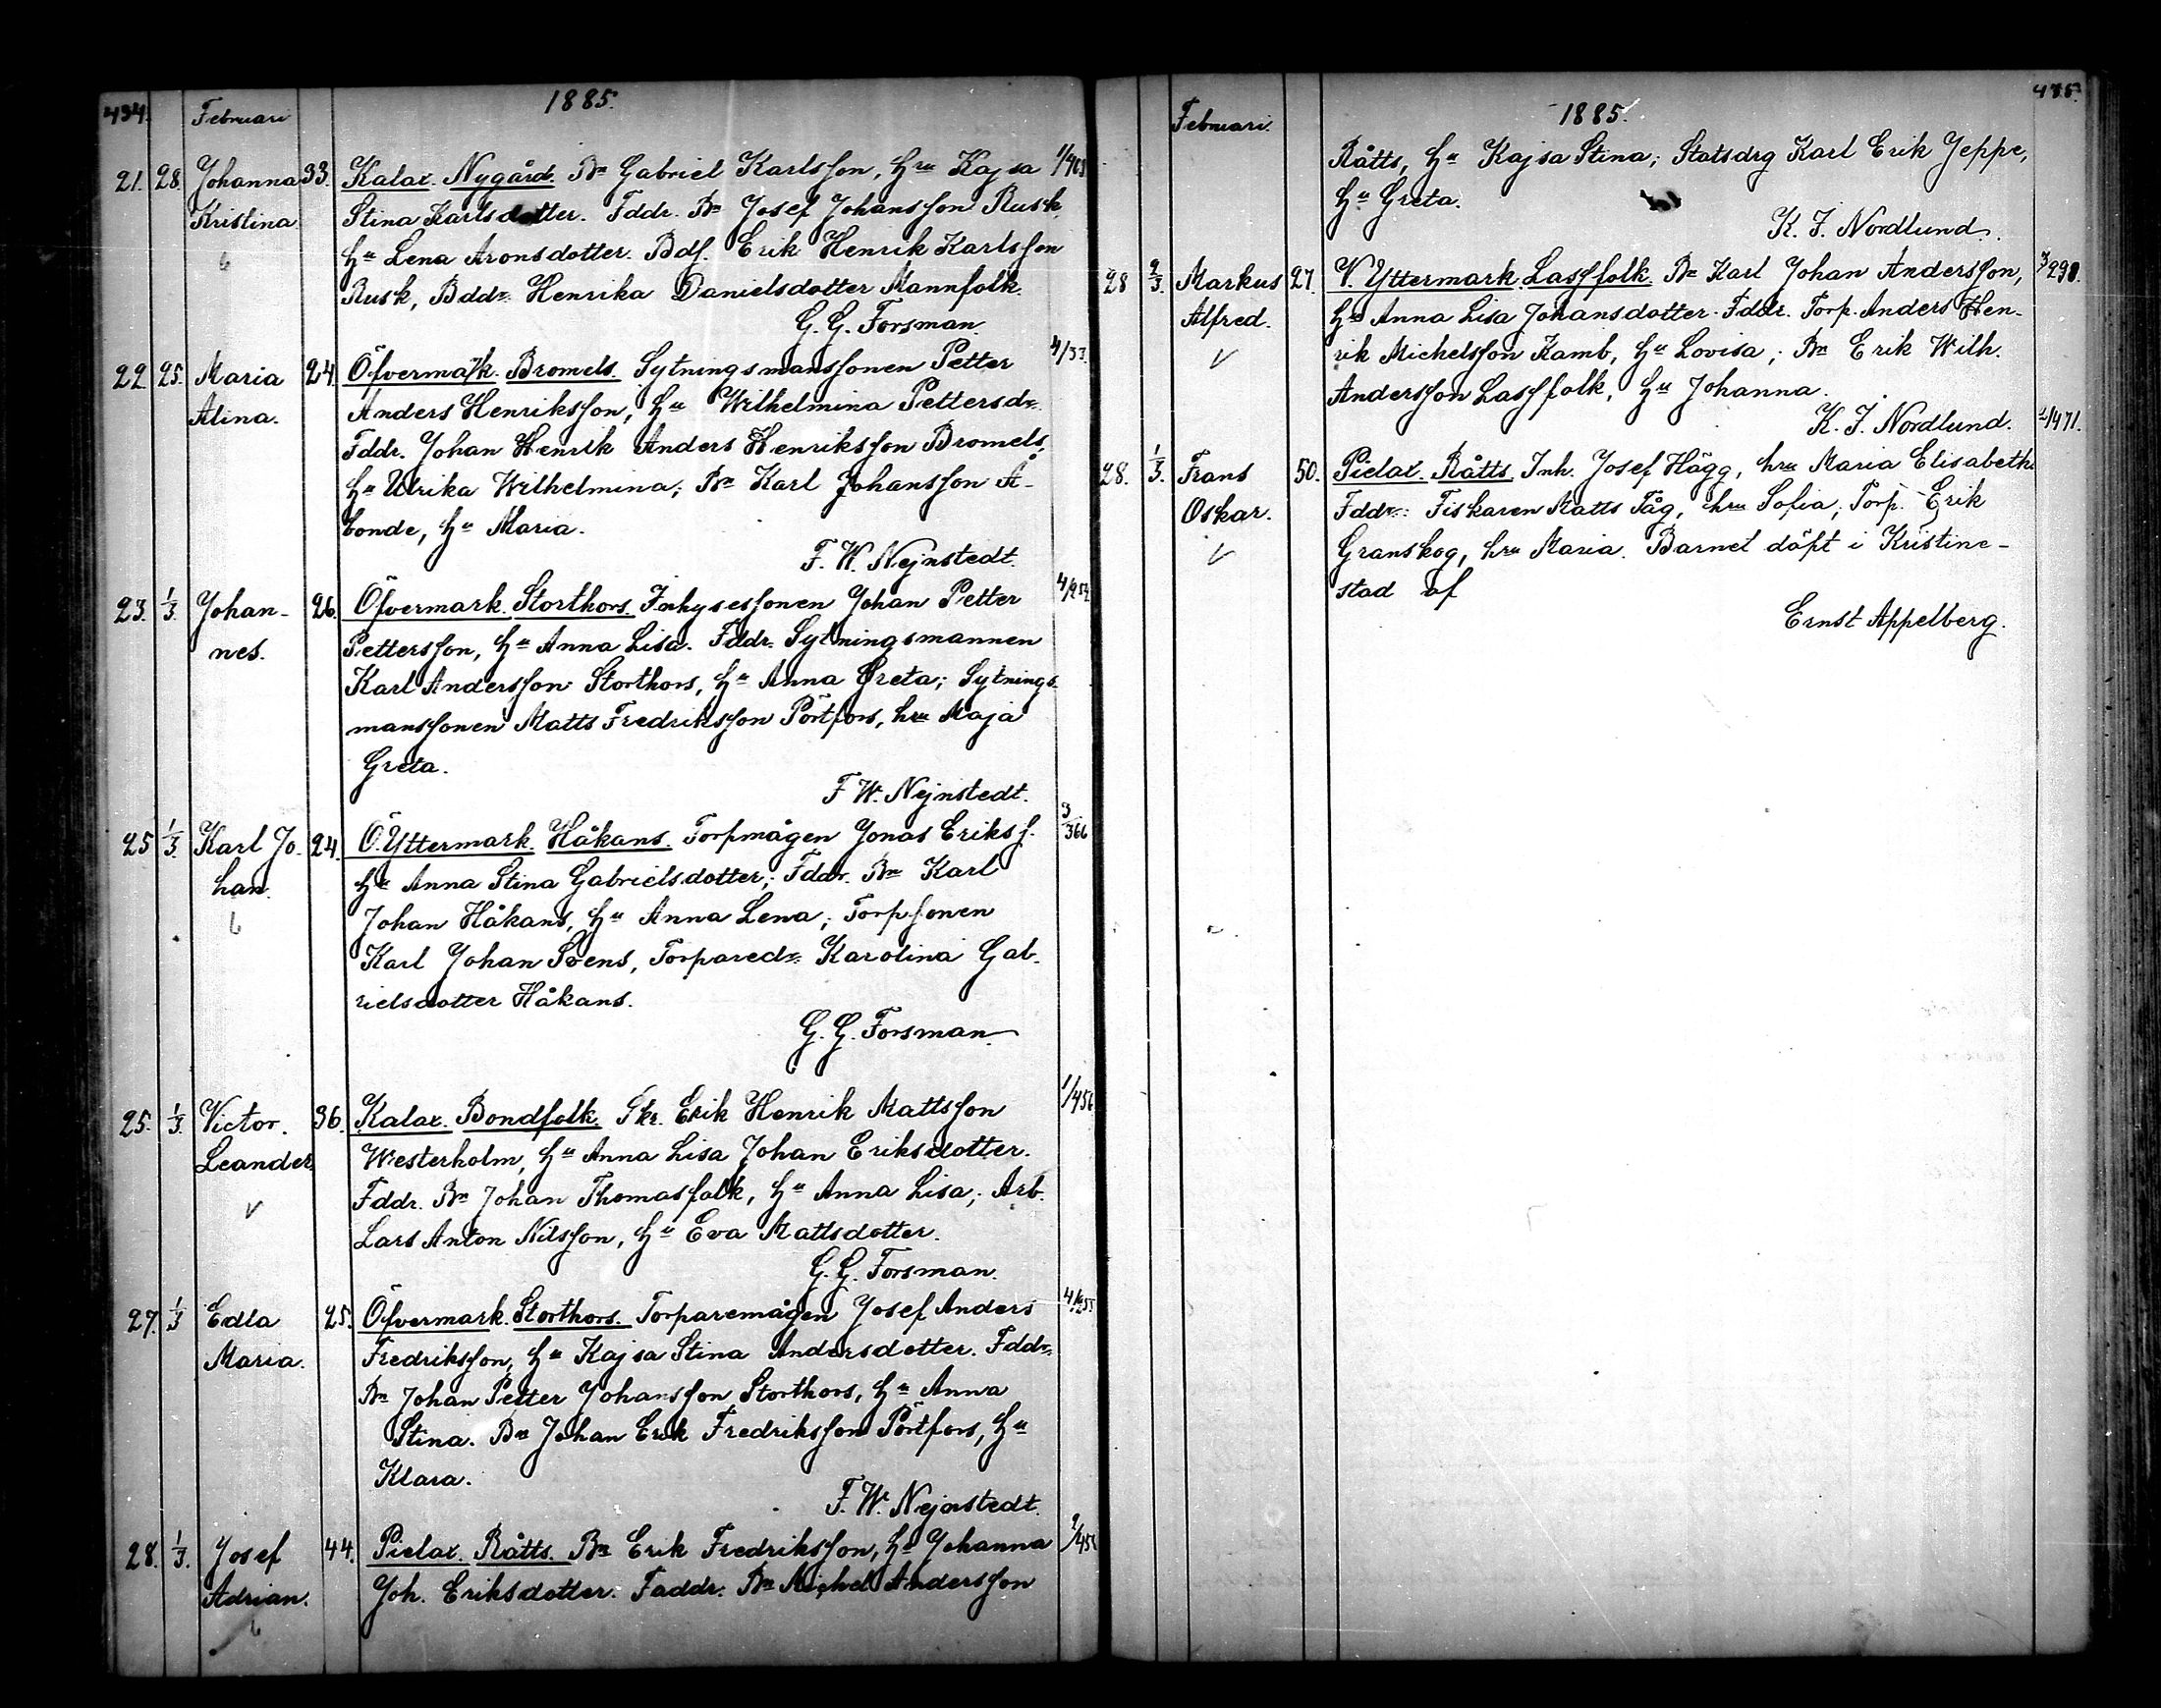 434.
Februari
1885.
21. 28. Johanna 33. Kalax. Nygård. Bn Gabriel Karlsson, hru Kajsa 1/463
Kristina Stina Karlsdotter. Fddr. Bn Josef Johansson Rusk,
hu Lena Aronsdotter. Bds. Erik Henrik Karlsson
Rusk, Bddr. Henrika Danielsdotter Mannfolk.
G. G. Forsman.
22. 25. Maria 24. Öfvermark. Bromels. Sytningsmanssonen Petter 4/33
Alina. Anders Henriksson, hu Wilhelmina Pettersdr.
Fddr. Johan Henrik Anders Henriksson Bromels,
hu Ulrika Wilhelmina; Bn Karl Johansson Å-
bonde, hu Maria.
F. W. Nejnstedt.
23. 1/3 Johan- 26. Öfvermark. Storthors. Inhysessonen Johan Petter 4/254
nes. Pettersson, hu Anna Lisa. Fddr. Sytningsmannen
Karl Andersson Storthors, hu Anna Greta; Sytnings-
manssonen Matts Fredriksson Pörtfors, hru Maja
Greta.
F W. Nejnstedt.
25 1/3. Karl Jo- 24. Ö. Yttermark. Håkans. Torpmågen Jonas Eriks. 3/366
han. hu Anna Stina Gabrielsdotter; Fddr. Bn Karl
Johan Håkans, hu Anna Lena; Torpsonen
Karl Johan Svens, Torparedr. Karolina Gab-
rielsdotter Håkans.
G. G. Forsman.
25. 1/3. Victor 36. Kalax. Bondfolk. Skr. Erik Henrik Mattsson 1/456
Leander Westerholm, hu Anna Lisa Johan Eriksdotter.
Fddr. Bn Johan Thomasfolk, hu Anna Lisa; Arb.
Lars Anton Nilsson, hu Eva Mattsdotter.
G. G. Forsman.
27. 1/3 Edla 25. Öfvermark. Storthors. Torparemågen Josef Anders 4/255
Maria. Fredriksson, hu Kajsa Stina Andersdotter. Fddr.
Bn Johan Petter Johansson Storthors, hu Anna
Stina. Bn Johan Erik Fredriksson Pörtfors, hu
Klara.
F. W. Nejnstedt.
28. 1/3. Josef 44. Pielax. Råtts. Bn Erik Fredriksson, hu Johanna
Adrian. Joh. Eriksdotter. Faddr. Bn Michel Andersson
435.
Februari.
1885.
Råtts, hu Kajsa Stina; Statsdrg Karl Erik Jeppe,
hu Greta.
K. J. Nordlund.
28 2/3. Markus 27. V. Yttermark. Lassfolk. Bn Karl Johan Andersson, 3/290.
Alfred. hu Anna Lisa Johansdotter. Fddr. Torp. Anders Hen-
rik Michelsson Kamb, hu Lovisa; Bn Erik Wilh.
Andersson Lassfolk, hu Johanna.
K. J. Nordlund.
28. 1/3. Frans 50. Pielax. Råtts. Inh. Josef Hägg, hru Maria Elisabeth. 2/471.
Oskar. Fddr. Fiskaren Matts Tåg, hru Sofia; Torp. Erik
Granskog, hru Maria. Barnet döpt i Kristine-
stad af
Ernst Appelberg.